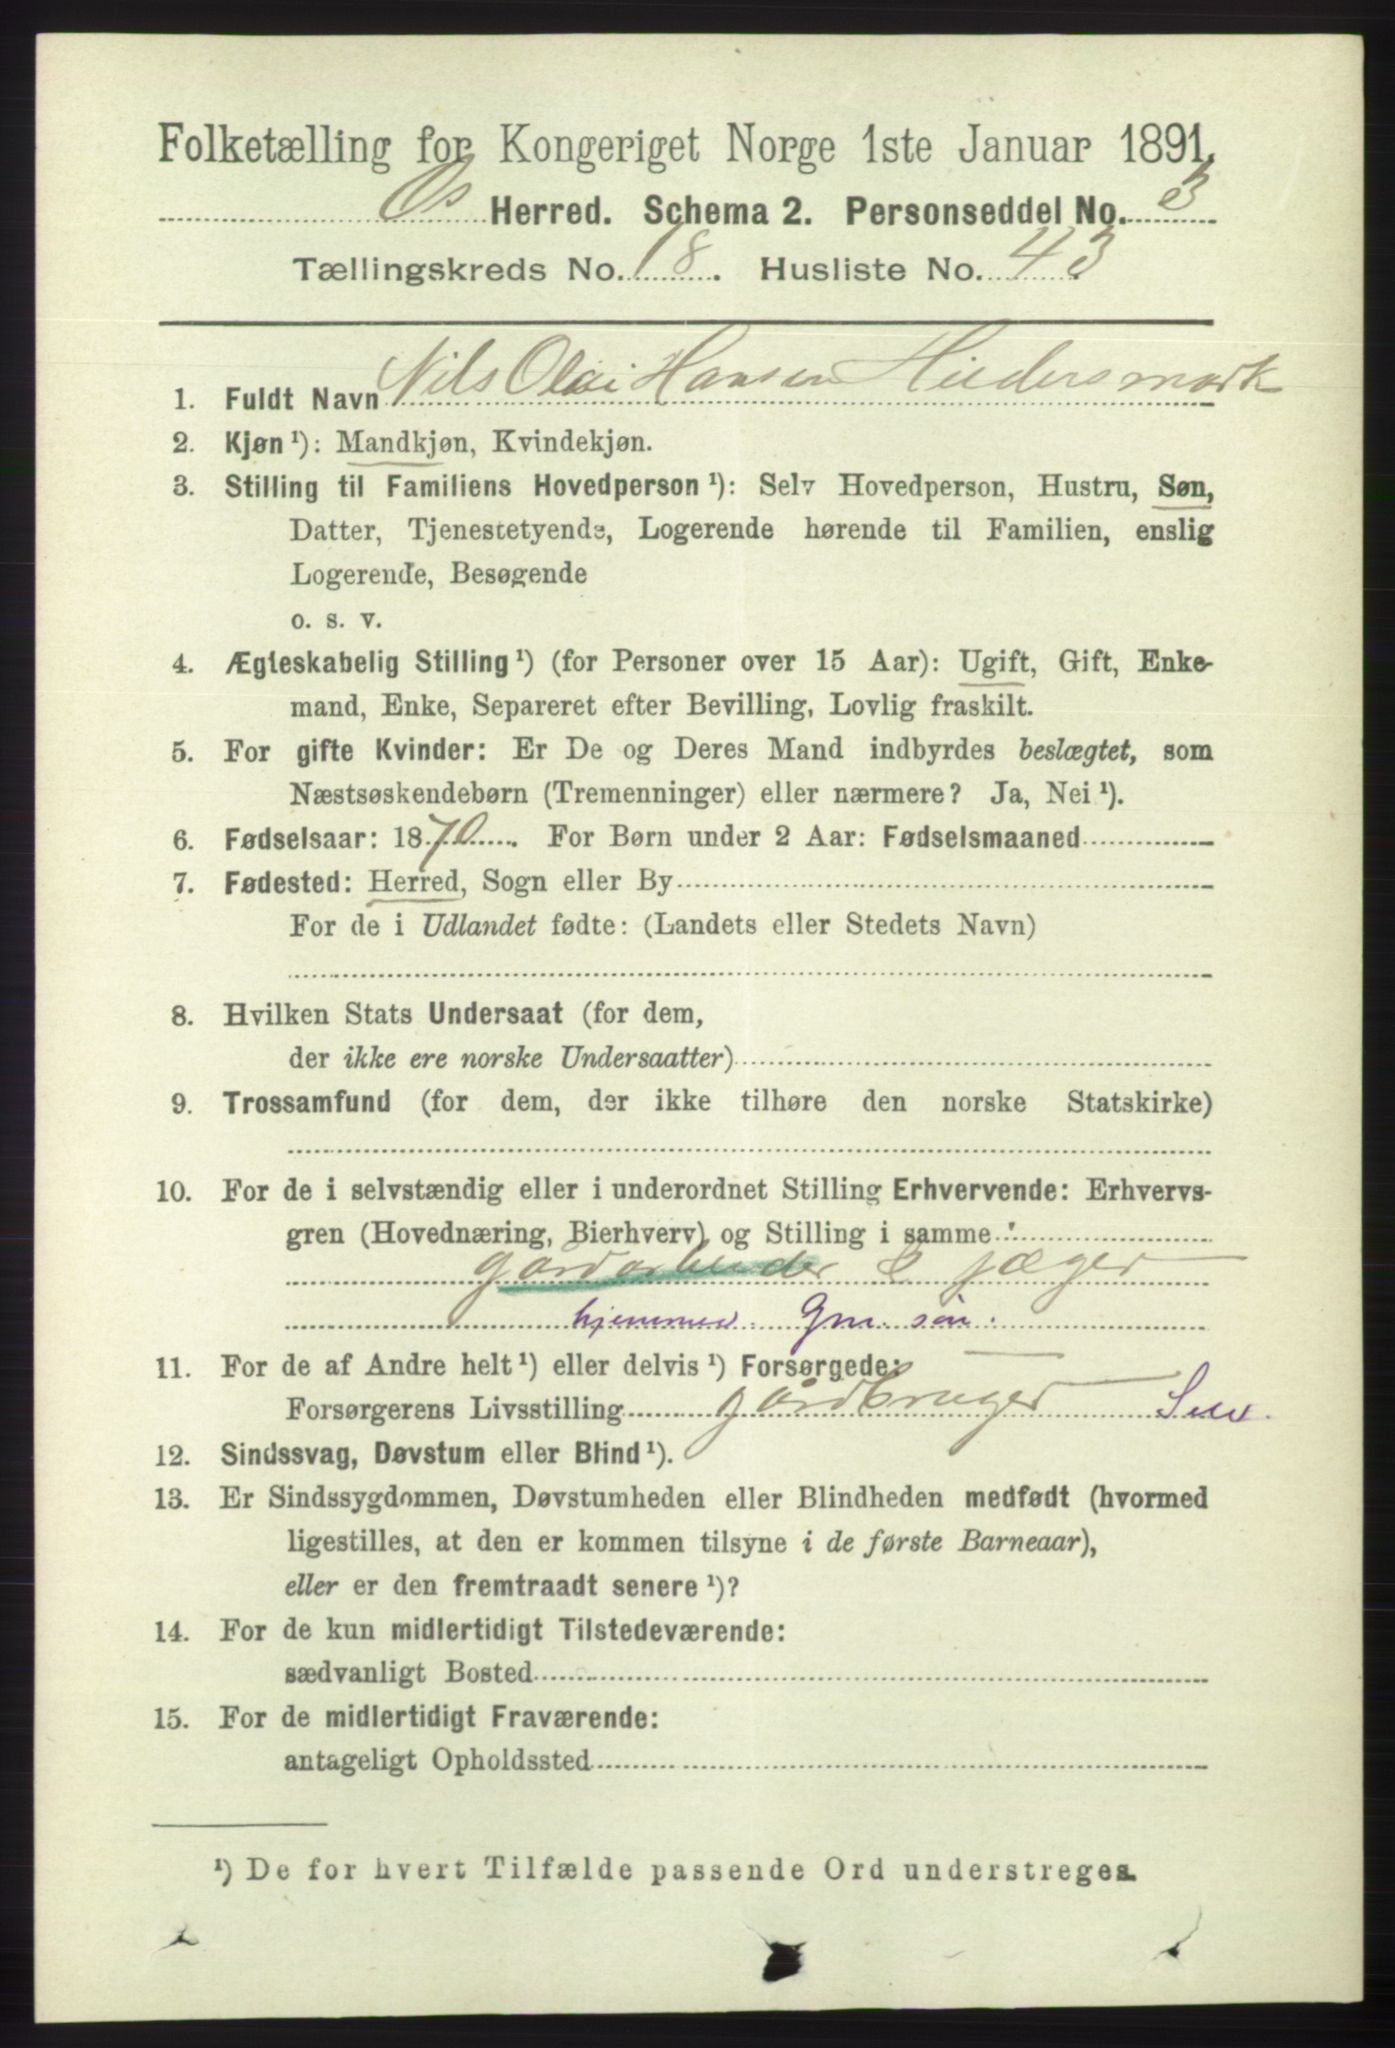 Folketælling for Kongeriget Norge 1ste Januar 1891.
Os Herred. Schema 2. Personseddel No. 3
Tællingskreds No. 18. Husliste No. 43
1. Fuldt Navn Nils Olai Hansen
2. Kjøn ¹): Mandkjøn, Kvindekjøn.
3. Stilling til Familiens Hovedperson ¹): Selv Hovedperson, Hustru, Søn,
Datter, Tjenestetyende, Logerende hørende til Familien, enslig
Logerende, Besøgende
o. s. v.
4. Ægteskabelig Stilling ¹) (for Personer over 15 Aar): Ugift, Gift, Enke-
mand, Enke, Separeret efter Bevilling, Lovlig fraskilt.
5. For gifte Kvinder: Er De og Deres Mand indbyrdes beslægtet, som
Næstsøskendebørn (Tremenninger) eller nærmere? Ja, Nei ¹).
6. Fødselsaar: 1870. For Børn under 2 Aar: Fødselsmaaned
7. Fødested: Herred, Sogn eller By
For de i Udlandet fødte: (Landets eller Stedets Navn)
8. Hvilken Stats Undersaat (for dem,
der ikke ere norske Undersaatter)
9. Trossamfund (for dem, der ikke tilhøre den norske Statskirke)
10. For de i selvstændig eller i underordnet Stilling Erhvervende: Erhvervs-
gren (Hovednæring, Bierhverv) og Stilling i samme:
gårdarbeider & jæger
hjemmev. Gm. søn.
11. For de af Andre helt ¹) eller delvis ¹) Forsørgede:
Forsørgerens Livsstilling gårdbruger
12. Sindssvag, Døvstum eller Blind ¹).
13. Er Sindssygdommen, Døvstumheden eller Blindheden medfødt (hvormed
ligestilles, at den er kommen tilsyne i de første Barneaar),
eller er den fremtraadt senere ¹)?
14. For de kun midlertidigt Tilstedeværende:
sædvanligt Bosted
15. For de midlertidigt Fraværende:
antageligt Opholdssted
¹) De for hvert Tilfælde passende Ord understreges.